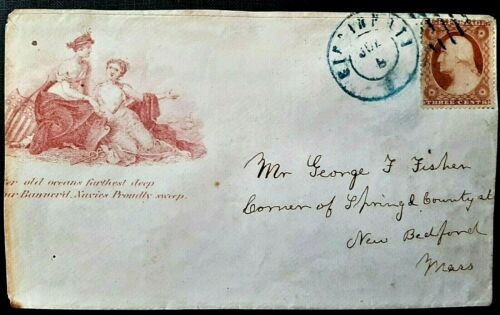 CINCINNATI
JUL
THREE CENTS
er old oceans farthest deep
ur Banner'd Navies Proudly sweep.
Mr George F Fisher
Corner of Spring & County st
New Bedford
Mass